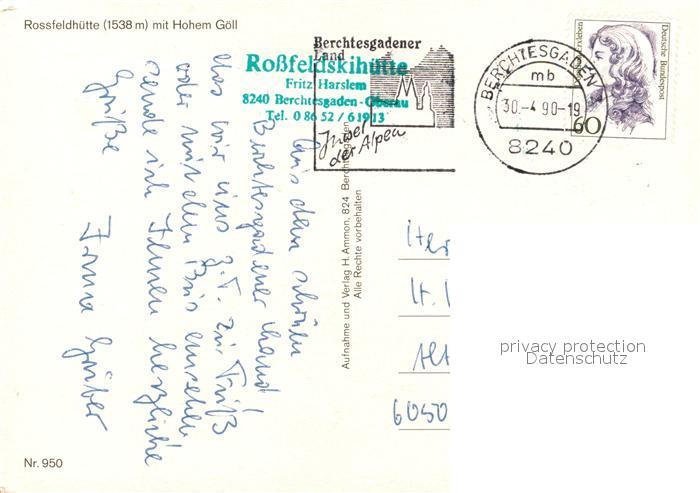 Rossfeldhütte (1538 m) mit Hohem Göll
Berchtesgadener
Land
Juwel
der Alpen
Roßfeldskihütte
Fritz Harslem
8240 Berchtesgaden-Oberau
Tel. 0 86 52 / 61913
BERCHTESGADEN
mb
30.-4 90-19
8240
Deutsche Bundespost
60
Aus dem schönen
Berchtesgadener Land,
das wir uns z.T. zu Fuß
oder mit dem Bus ansehen
sende ich Ihnen herzliche
Grüße
Aufnahme und Verlag H. Ammon, 824 Berchtesgaden
Alle Rechte vorbehalten
6050
privacy protection
Datenschutz
Nr. 950